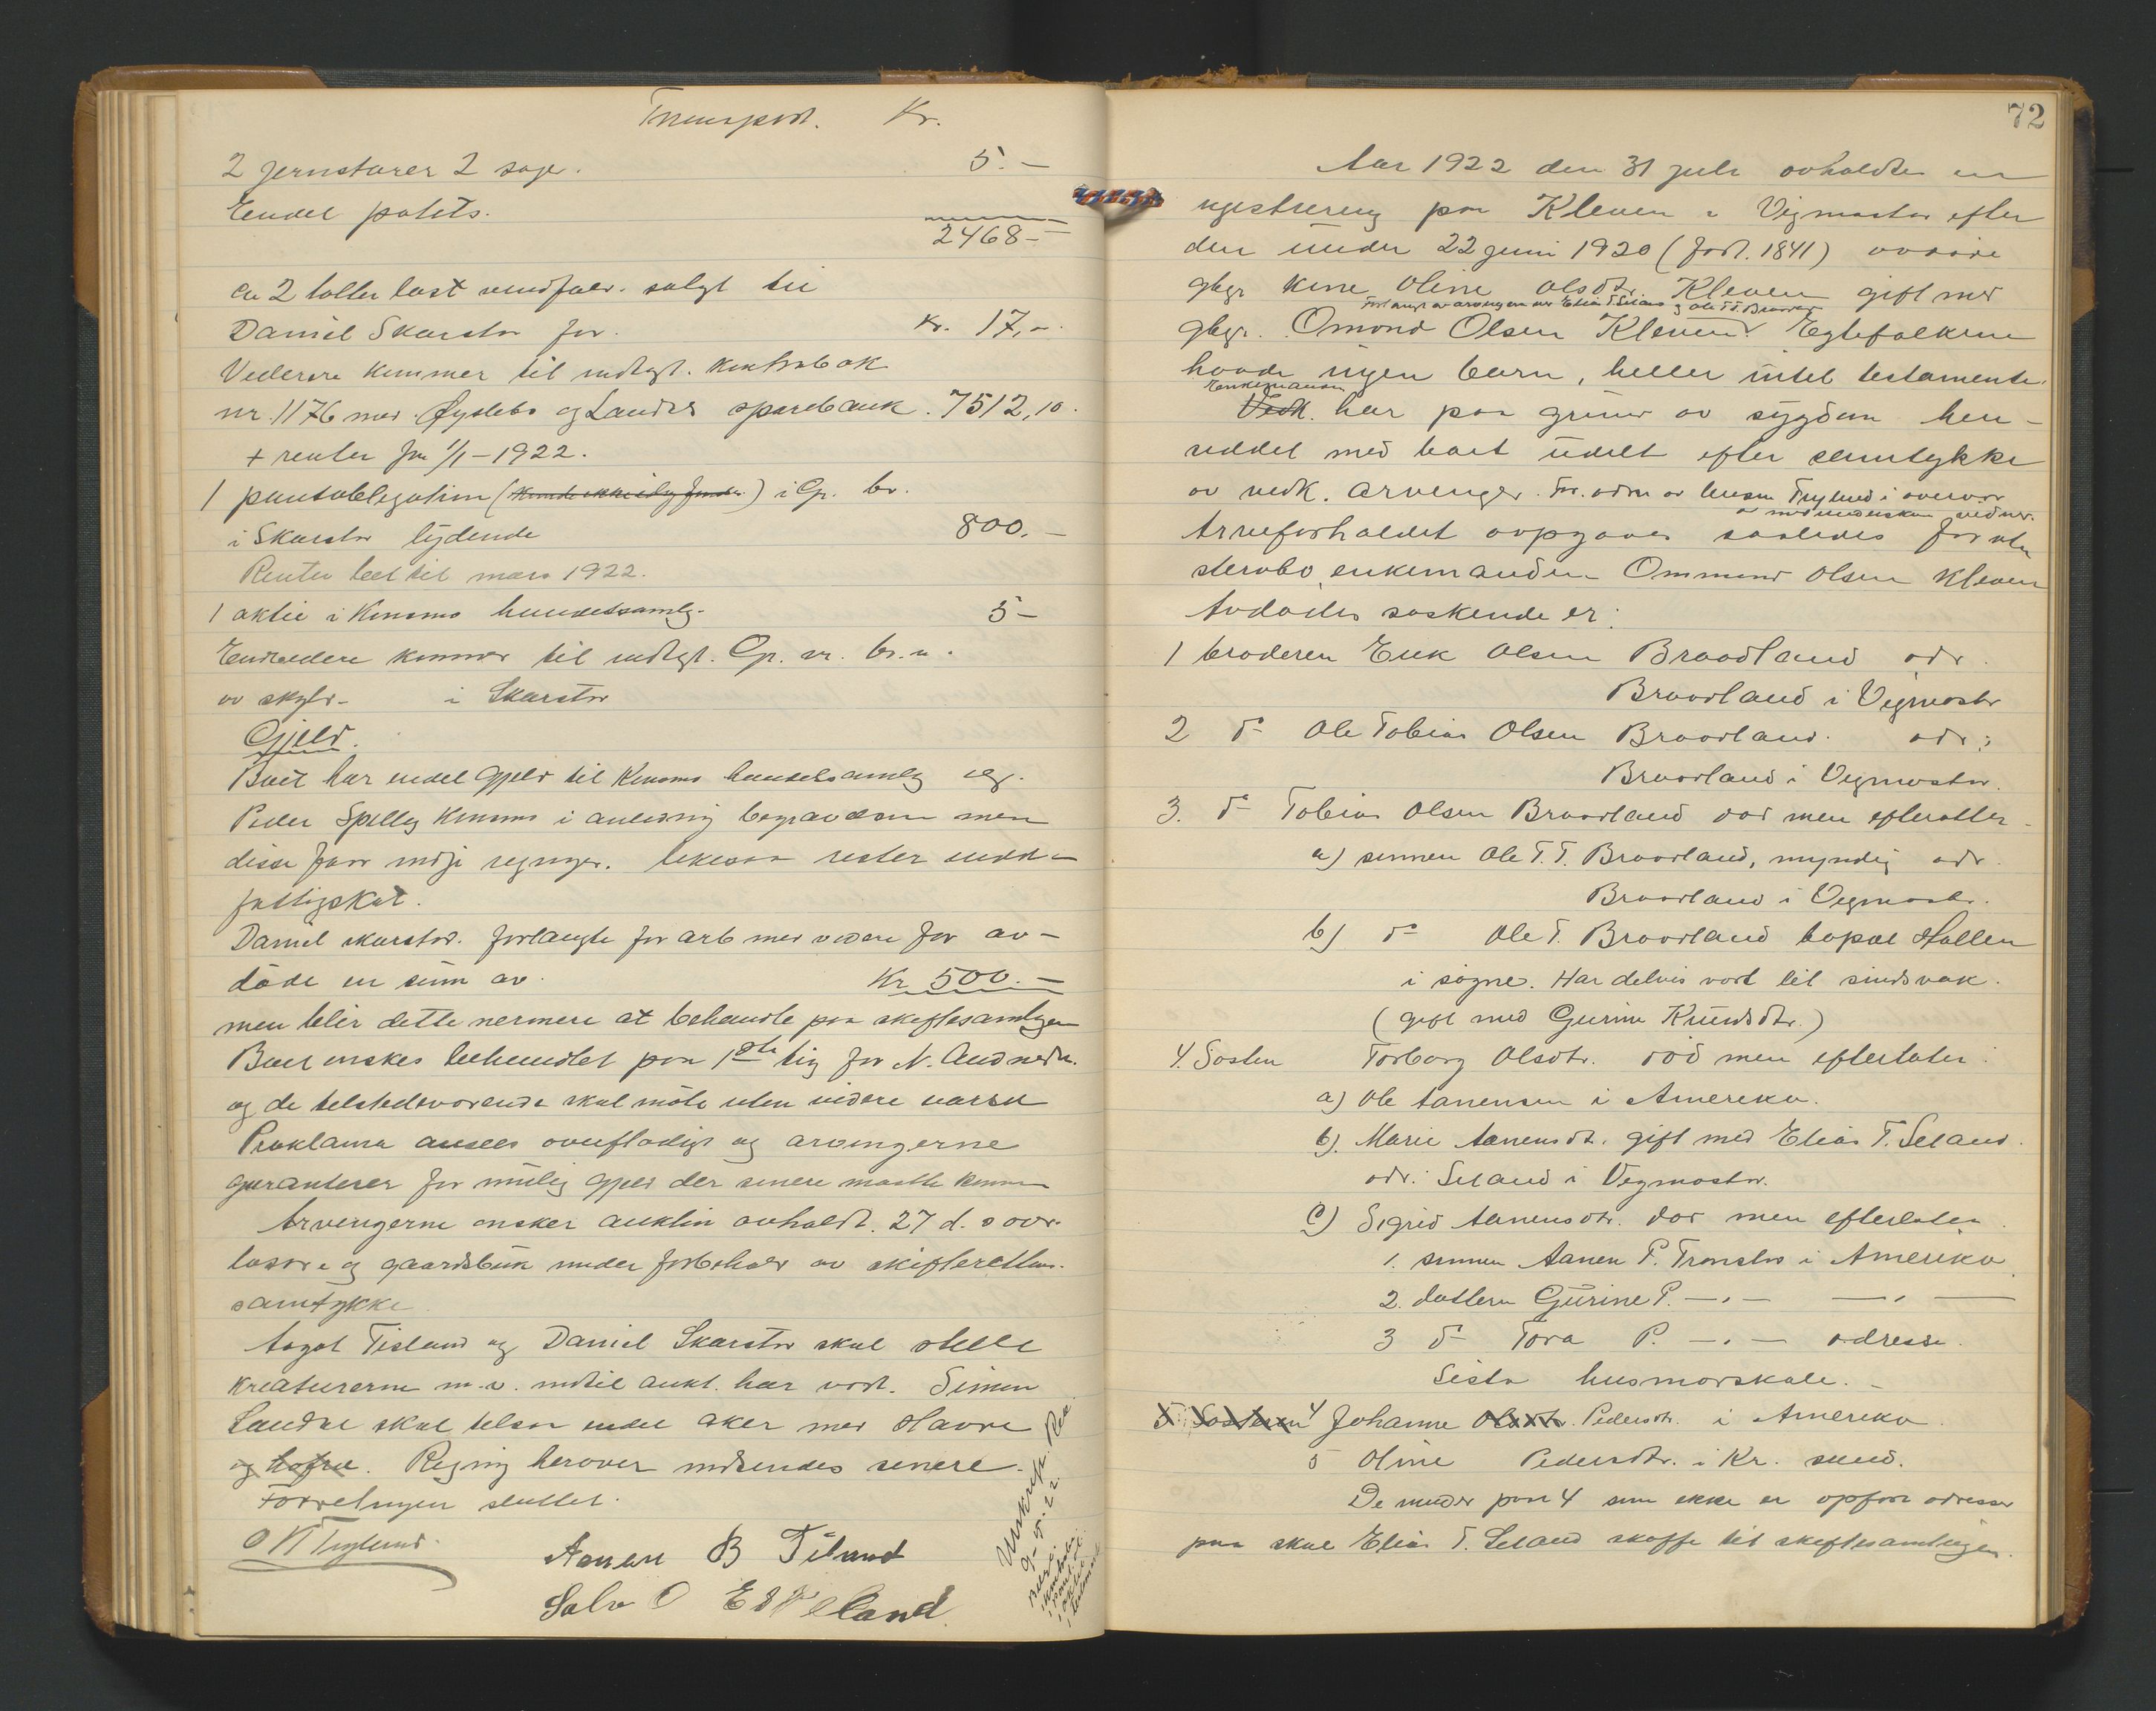 Transport. Kr.
2 jernstarer 2 sage. 5.—
Endel potets.
2468—
ca 2 tolter last vindfald. solgt til
Daniel Skarstøv for. Kr. 17,—.
Videre kommer til indtægt. Kontrabok
nr. 1176 med Øyslebø og Laudal sparebank. 7512,10.
+ renter fra 1/1—1922.
1 pantobligation () i Gr. br.
i Skarstøv lydende 800.—
Renter betalt til mars 1922.
1 aktie i Konsmo handelssamlg. 5—
Endvidere kommer til indtægt. Gr. nr. br. n.
av skyld— i Skarstøv
Gjeld.
Boet har endel gjeld til Konsmo handelssamlg og
Peder Spilling Konsmo i anledning begravelsen men
disse faar indgi regninger. likesaa rester endel
fattigskat.
Daniel Skarstøv. forlangte for arb med videre for av—
døde en sum av. Kr 500.—
men blir dette nermere at behandle paa skiftesamlingen
Boet ønskes behandlet paa 1ste ting for N. Audnedal.
og de tilstedeværende skal møte uten videre varsel
Proklama ansees overflødigt og arvingerne
garanterer for mulig gjeld der senere maatte komme
Arvingerne ønsker auktion avholdt. 27 d. s over
løsøre og gaardsbruk under forbehold av skifterettens
samtykke.
Aagot Tisland og Daniel Skarstøv skal stelle
kreaturerne m.v. indtil aukt. har vært. Simon
Laudal skal tilsaa endel aker med Havre
og havre. Regning herover indsendes senere.
Forretningen sluttet.
O N Trylund.
Aanen B Tiland
Salve O Eskeland
Utskrift
9-5-22
72
Aar 1922 den 31 juli avholdtes en
registrering paa Kleven i Vigmostad efter
den under 22 juni 1920 (født. 1841) avdøde
gbgr kone Oline Olsdtr. Kleven gift med
Forlangt av arvingerne ved Elias T. Seland og Ole T. T. Braadland
gbgr. Omond Olsen Kleven. Egtefolkene
havde ingen barn, heller intet testamente.
Enkemanden
Vedk. har paa grund av sygdom hen-
siddet med boet udelt efter samtykke
av vedk. arvinger. For. adm av lensm Trylund i overvær
av undertegnede vidner.
Arveforholdet opgaves saaledes foruten
stervbo enkemanden Ommund Olsen Kleven
Avdødes søskende er:
1 broderen Erik Olsen Braadland adr.
Braadland i Vigmostad
2 do Ole Tobias Olsen Braadland. adr:
Braadland i Vigmostad.
3. do Tobias Olsen Braadland død men efterlater—
a) sønnen Ole T. T. Braadland, myndig adr.
Braadland i Vigmostad.
b) do Ole T. Braadland bopæl Hollen
i søgne. Har delvis vært litt sindsvak.
(gift med Gurine Knudsdtr.)
4. Søsteren Torborg Olsdtr. død men efterlater:
a) Ole Aanensen i Amerika.
b). Marie Aanensdt. gift med Elias T. Seland.
adr. Seland i Vigmostad.
c) Sigrid Aanensdtr. død men efterlater.
1. sønnen Aanen P. Tronstad i Amerika
2. datteren Gurine P. —.— —.—
3 do Tora P. —.— adresse.
Lista husmorskole.—
5 Søsteren 4 Johanne Olsdtr. Pedersdtr. i Amerika
5 Oline Pedersdtr. i Kr. sand.
De under post 4 som ikke er opført adresse
paa skal Elias T. Seland skaffe til skiftesamlingen.